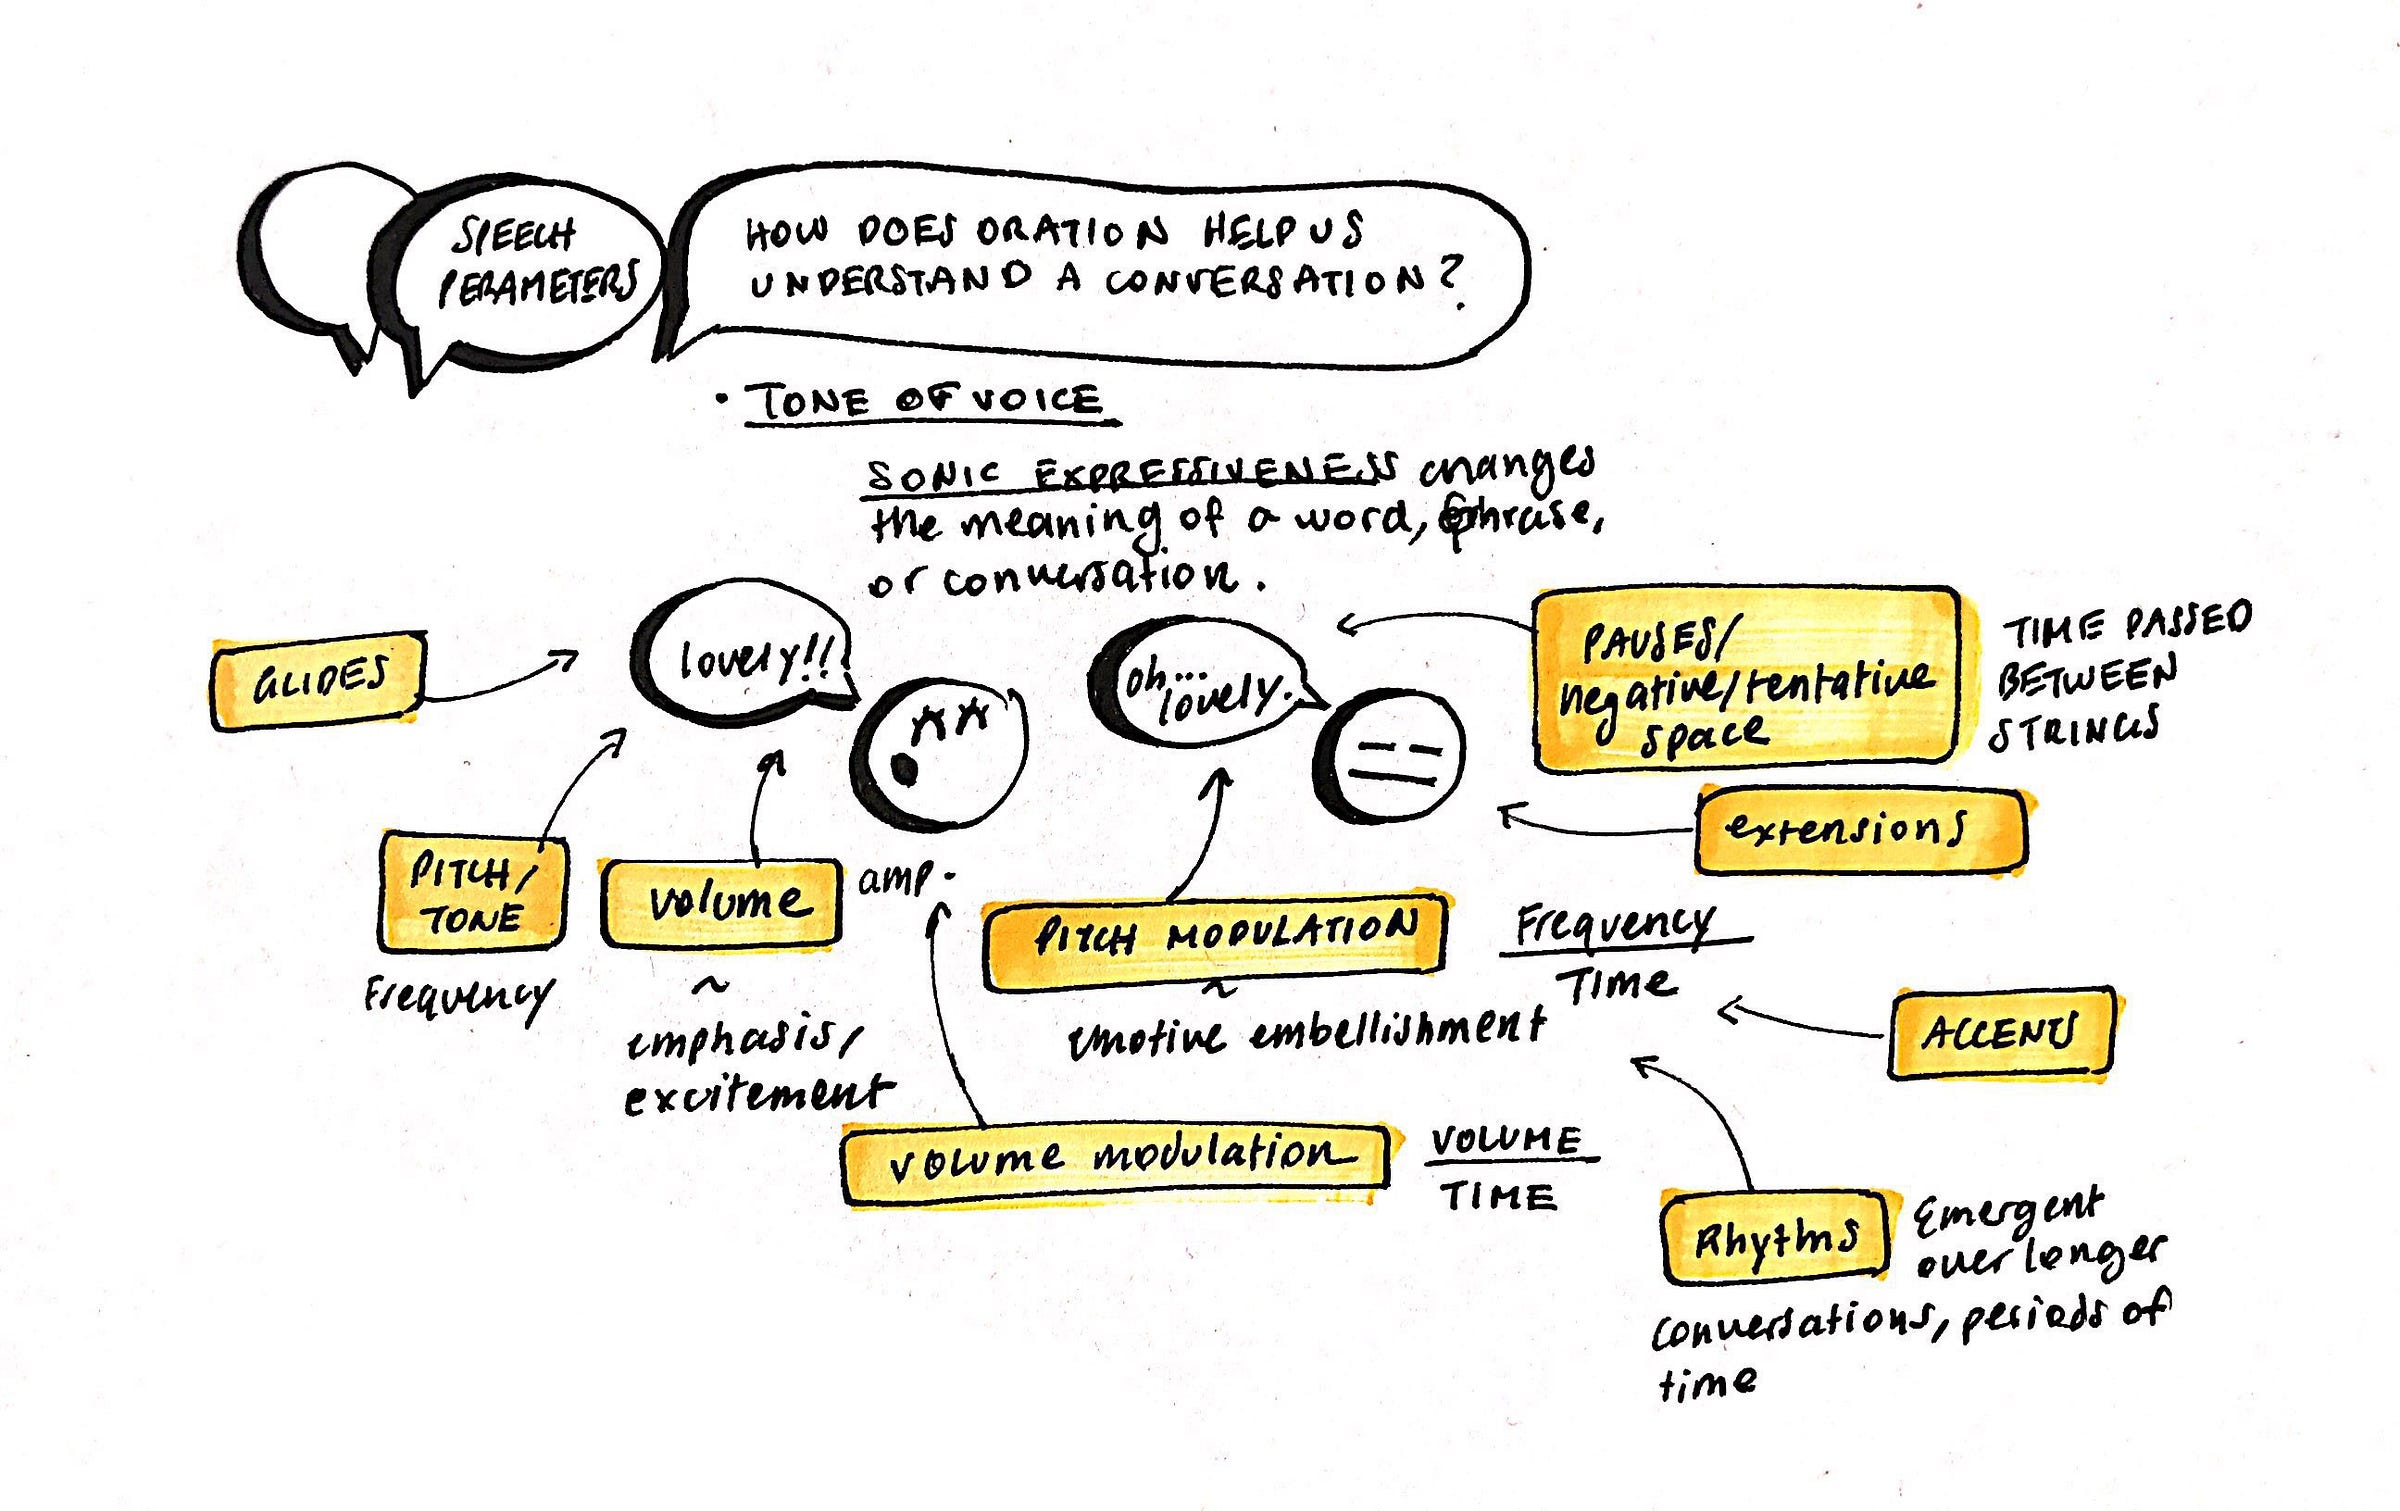 SPEECH
PERAMETERS
HOW DOES ORATION HELP US
UNDERSTAND A CONVERSATION?
• TONE OF VOICE
SONIC EXPRESSIVENESS changes
the meaning of a word, phrase,
or conversation.
GLIDES
lovely!!
oh...
lovely.
PAUSES/
negative/tentative
space
TIME PASSED
BETWEEN
STRINGS
extensions
PITCH/
TONE
Frequency
volume
amp.
~
emphasis/
excitement
PITCH MODULATION
~
emotive embellishment
Frequency
Time
ACCENTS
volume modulation
VOLUME
TIME
Rhythms
Emergent
over longer
conversations, periods of
time